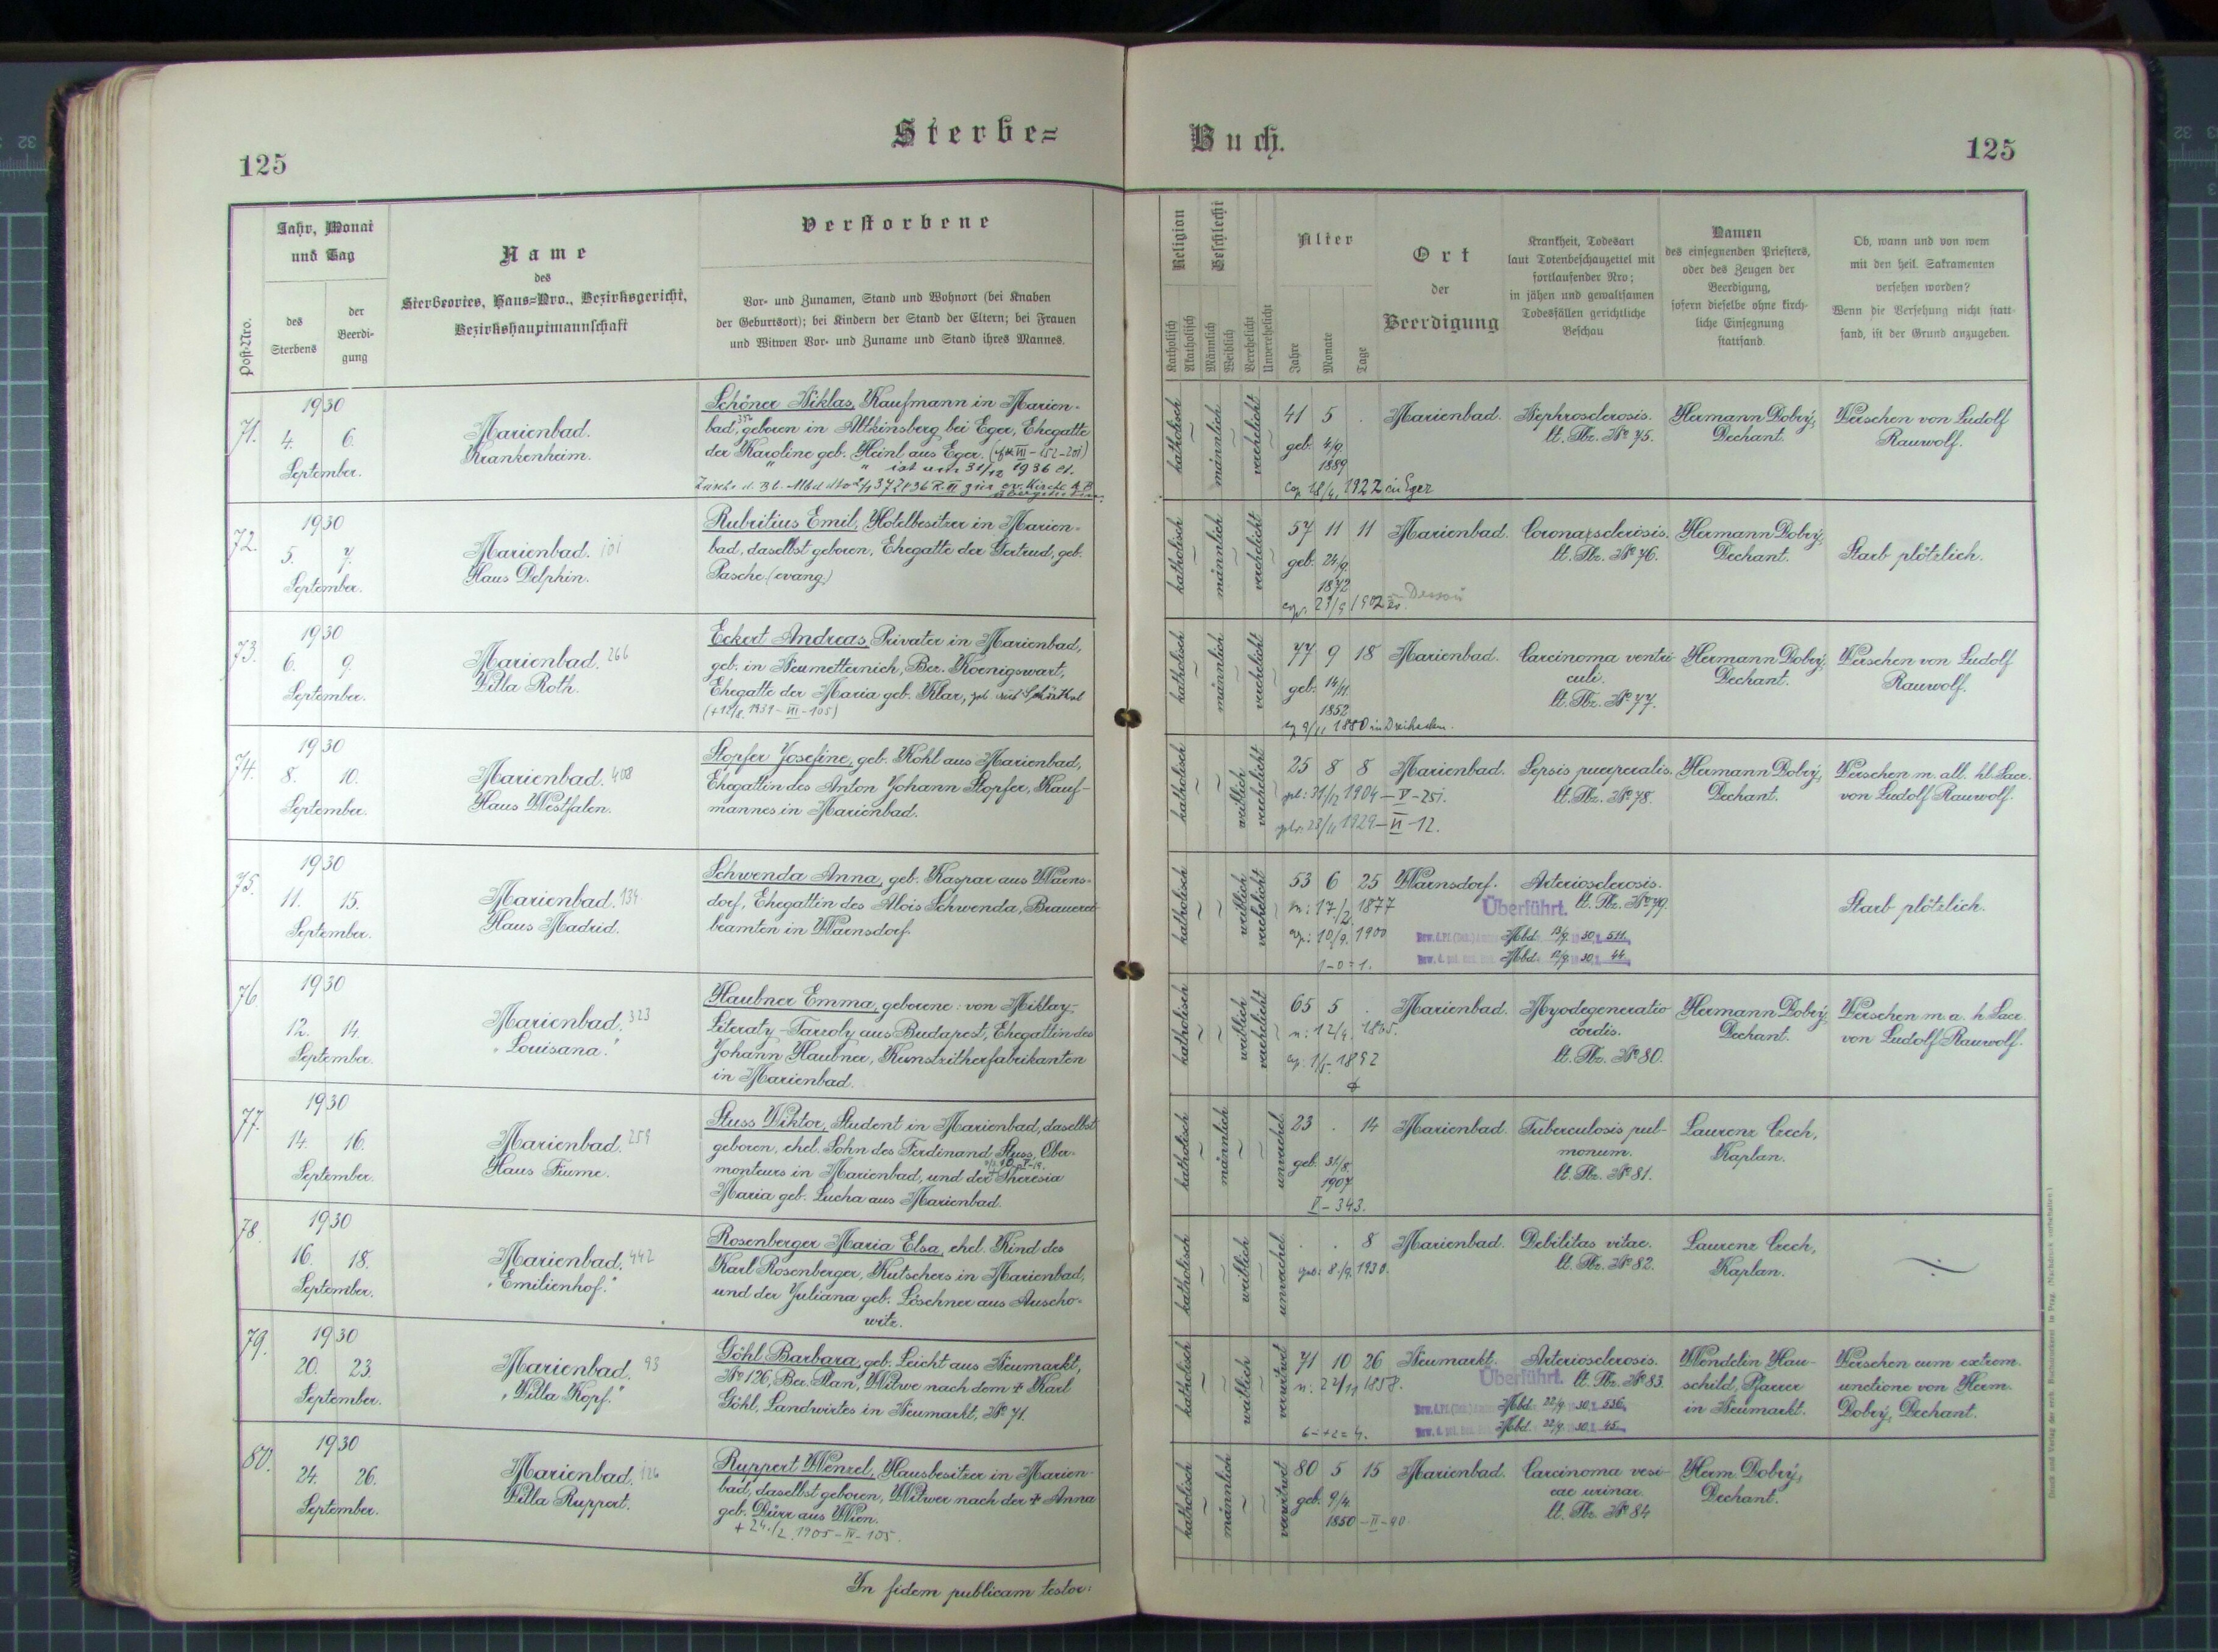 Sterbe=
Buch.
125
125
Post-Nro.
Jahr, Monat
und Tag
des
Sterbens
der
Beerdi-
gung
Name
des
Sterbeortes, Haus=Nro., Bezirksgericht,
Bezirkshauptmannschaft
Verstorbene
Vor- und Zunamen, Stand und Wohnort (bei Knaben
der Geburtsort); bei Kindern der Stand der Eltern; bei Frauen
und Witwen Vor- und Zuname und Stand ihres Mannes.
Religion
Katholisch
Akatholisch
Geschlecht
Männlich
Weiblich
Verehelicht
Unverehelicht
Alter
Jahre
Monate
Tage
Ort
der
Beerdigung
Krankheit, Todesart
laut Totenbeschauzettel mit
fortlaufender Nro;
in jähen und gewaltsamen
Todesfällen gerichtliche
Beschau
Namen
des einsegnenden Priesters,
oder des Zeugen der
Beerdigung,
sofern dieselbe ohne kirch-
liche Einsegnung
stattfand.
Ob, wann und von wem
mit den heil. Sakramenten
versehen worden?
Wenn die Versehung nicht statt-
fand, ist der Grund anzugeben.
71.
1930
4. 6.
September.
Marienbad.
Krankenheim.
Schöner Niklas, Kaufmann in Marien-
bad, geboren in Altkinsberg bei Eger, Ehegatte
der Karoline geb. Heinl aus Eger.
ist am 31/12 1936 lt.
katholisch
männlich
verehelicht
41 5 .
geb. 4/9.
1889
cop. 18/4. 1922 in Eger
Marienbad.
Nephrosclerosis.
lt. Tbz. No 75.
Hermann Dobrý,
Dechant.
Versehen von Ludolf
Rauwolf.
72.
1930
5. 7.
September.
Marienbad. 101
Haus Delphin.
Rubritius Emil, Hotelbesitzer in Marien-
bad, daselbst geboren, Ehegatte der Gertrud, geb.
Pasche (evang.)
katholisch
männlich
verehelicht
57 11 11
geb. 24/9.
1872
Marienbad.
Coronarsclerosis.
lt. Tbz. No 76.
Hermann Dobrý,
Dechant.
Starb plötzlich.
73.
1930
6. 9.
September.
Marienbad. 266
Villa Roth.
Eckert Andreas, Privater in Marienbad,
geb. in Neumetternich, Bez. Koenigswart,
Ehegatte der Maria geb. Klar,
(+12/8. 1931-III-105)
katholisch
männlich
verehelicht
77 9 18
geb. 14/11.
1852
Marienbad.
Carcinoma ventri-
culi.
lt. Tbz. No 77.
Hermann Dobrý,
Dechant.
Versehen von Ludolf
Rauwolf.
74.
1930
8. 10.
September.
Marienbad. 408
Haus Westfalen.
Stopfer Josefine, geb. Kohl aus Marienbad,
Ehegattin des Anton Johann Stopfer, Kauf-
mannes in Marienbad.
katholisch
weiblich
verehelicht
25 8 8
geb: 31/12 1904-V-251.
28/11 1929-VI-12.
Marienbad.
Sepsis puerperalis.
lt. Tbz. No 78.
Hermann Dobrý,
Dechant.
Versehen m. all. hl. Sacr.
von Ludolf Rauwolf.
75.
1930
11. 15.
September.
Marienbad. 134
Haus Madrid.
Schwenda Anna, geb. Kaspar aus Warns-
dorf, Ehegattin des Alois Schwenda, Brauerei-
beamten in Warnsdorf.
katholisch
weiblich
verehelicht
53 6 25
n: 17/2. 1877
cop: 10/9. 1900
1-0=1.
Warnsdorf.
Arteriosclerosis.
Überführt. lt. Tbz. No 79.
Mbd. 13/9. 30, 511.
Mbd. 12/9. 30, 44.
Starb plötzlich.
76
1930
12. 14.
September.
Marienbad. 323
"Louisana."
Haubner Emma, geborene: von Miklay,
Literaty-Tarzoly aus Budapest, Ehegattin des
Johann Haubner, Kunstzitherfabrikanten
in Marienbad.
katholisch
weiblich
verehelicht
65 5 .
n: 12/4. 1865.
Marienbad.
Myodegeneratio
cordis.
lt. Tbz. No 80.
Hermann Dobrý,
Dechant.
Versehen m. a. h. Sacr.
von Ludolf Rauwolf.
77.
1930
14. 16.
September.
Marienbad. 259
Haus Fiume.
Stuss Viktor, Student in Marienbad, daselbst
geboren, ehel. Sohn des Ferdinand Stuss, Ober-
monteurs in Marienbad, und der Theresia
Maria geb. Lucha aus Marienbad.
katholisch
männlich
unverehel.
23 . 14
geb. 31/8.
1907
V-343.
Marienbad.
Tuberculosis pul-
monum.
lt. Tbz. No 81.
Laurenz Czech,
Kaplan.
78.
1930
16. 18.
September.
Marienbad. 442
"Emilienhof."
Rosenberger Maria Elsa, ehel. Kind des
Karl Rosenberger, Kutschers in Marienbad,
und der Juliana geb. Löschner aus Auscho-
witz.
katholisch
weiblich
unverehel.
. . 8
geb: 8/9. 1930.
Marienbad.
Debilitas vitae.
lt. Tbz. No 82.
Laurenz Czech,
Kaplan.
79.
1930
20. 23.
September.
Marienbad. 93
"Villa Kopf."
Göhl Barbara, geb. Leicht aus Neumarkt,
No 126, Bez. Plan, Witwe nach dem + Karl
Göhl, Landwirtes in Neumarkt, No 71.
katholisch
weiblich
verwitwet
71 10 26
n. 22/11 1858.
Neumarkt.
Arteriosclerosis.
Überführt. lt. Tbz. No 83.
Mbd. 22/9. 30, 536.
Mbd. 22/9. 30, 45.
Wendelin Hau-
schild, Pfarrer
in Neumarkt.
Versehen cum extrem.
unctione von Herm.
Dobrý, Dechant.
80.
1930
24. 26.
September.
Marienbad. 126
Villa Ruppert.
Ruppert Wenzel, Hausbesitzer in Marien-
bad, daselbst geboren, Witwer nach der + Anna
geb. Dürr aus Wien.
+ 24./2. 1905-IV-105.
katholisch
männlich
verwitwet
80 5 15
geb. 9/4.
1850-II-90
Marienbad.
Carcinoma vesi-
cae urinar.
lt. Tbz. No 84
Herm. Dobrý,
Dechant.
In fidem publicam testor: